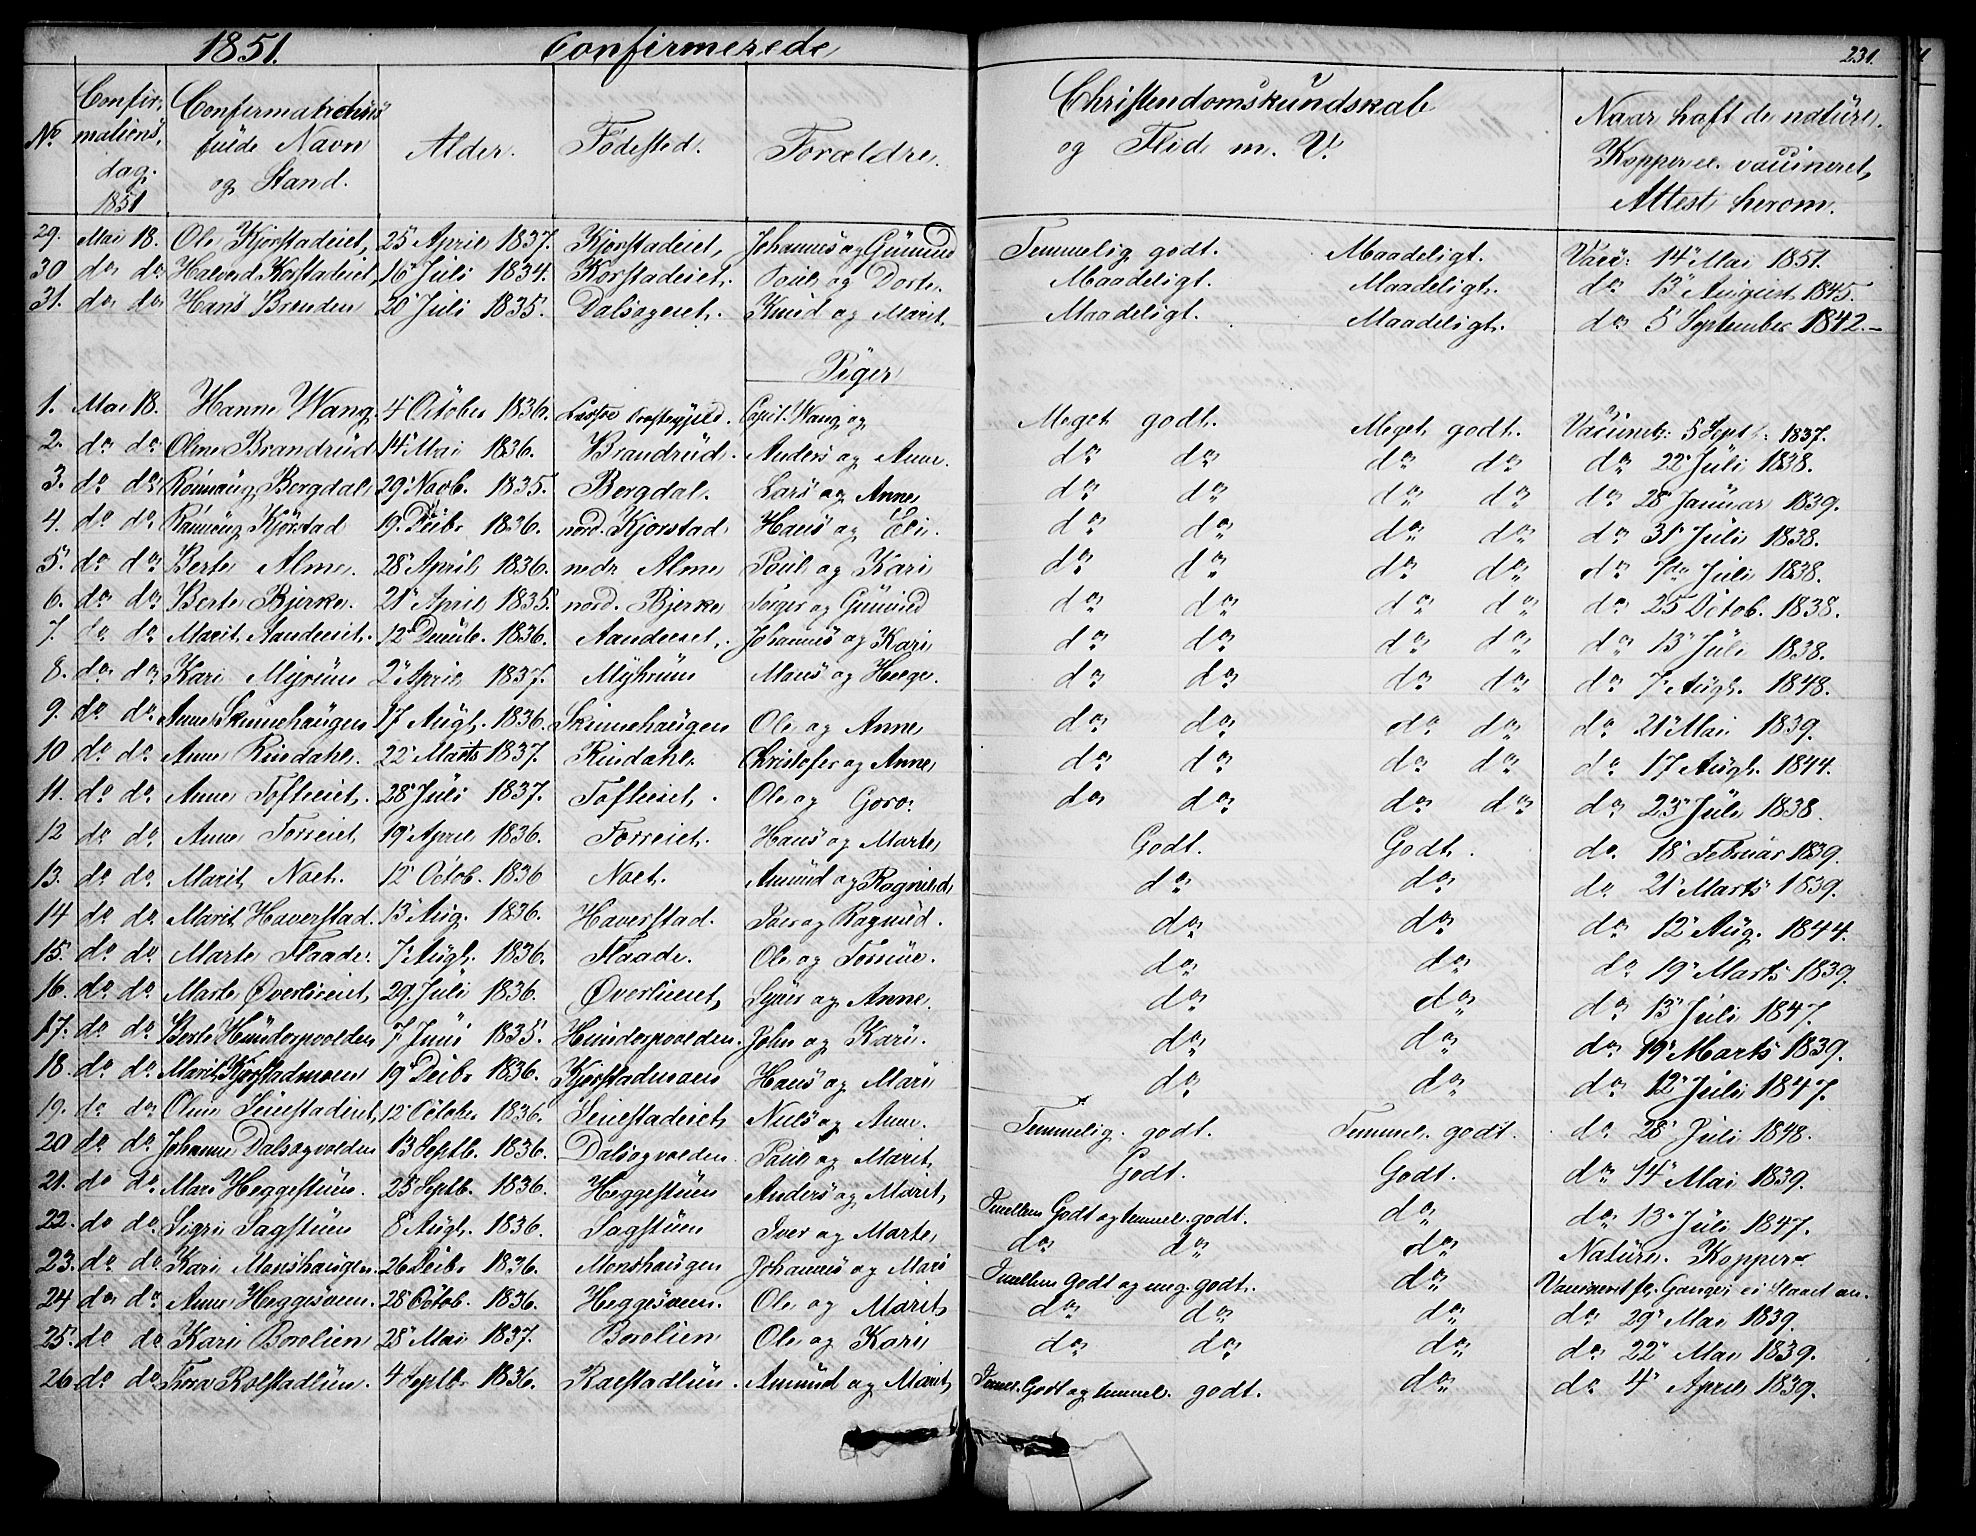 1851. Confirmerede 231.
No. Confirmationsdag. 1851 Confirmationens fulde Navn og Stand. Alder. Fødested. Forældre. Christendomskundskab og Flid m. V. Naar haft de naturl. Kopper el. vaccineret, Attest herom.
29. Mai 18. Ole Kjorstadeiet, 25 April 1837. Kjorstadeiet, Johannes og Gumund Temmelig godt. Maadeligt. Vacc: 14 Mai 1851.
30 do do Halvord Korstadeiet, 16 Juli 1834. Korstadeiet. Poul og Dorte. Maadeligt. Maadeligt. do 13 August 1845.
31. do do Hans Brenden 20 Juli 1835. Dalsøgeiet. Knud og Marit, Maadeligt. Maadeligt. do 5 September 1842.
Piger
1. Mai 18. Hanne Wang 4 October 1836. Capit. Wang og Meget godt. Meget godt. Vaccinet: 5 Sept. 1837.
2. do do Olene Brandrud 14 Mai 1836. Brandrud. Anders og Anne. do do do do do 22 Juli 1838.
3. do do Rønnaug Bergdal 29 Novb. 1835. Bergdal. Lars og Anne do do do do do 28 Januar 1839.
4. do do Rønnaug Kjørstad 19. Decbr 1836. nord. Kjorstad Hans og Eli. do do do do do 31 Juli 1838.
5. do do Berte Alme. 28 April 1836. nedr Alme Poul og Kari do do do do do Juli 1838.
6. do do Berte Bjerke. 21 April 1835. nord. Bjerke Torger og Gumund do do do do do 25 Octob. 1838.
7. do do Marit Aandeeiet. 12 Decemb. 1836. Aandeeiet. Johannes og Kari do do do do do 13 Juli 1838.
8. do do Kari Myrum 2 April 1837. Myhrum Mons og Helge. do do do do do 7 Augh. 1848.
9. do do Anne Skinnehaugen 17 Augh. 1836. Skinnehaugen Ole og Anne do do do do do 21 Mai 1839.
10 do do Anne Rindahl. 22 Marts 1837. Rindahl. Christofer og Anne do do do do do 17 Augh. 1844.
11. do do Anne Tofteeiet. 28 Juli 1837. Tofteeiet. Ole og Goro. do do do do do 23 Juli 1838.
12 do do Anne Forreiet. 19 April 1836. Forreiet. Hans og Marte Godt. Godt. do 18 Februar 1839.
13. do do Marit Noet. 12 Octob. 1836 Noet. Amund og Ragnild do do do 21 Marts 1839.
14 do do Marit Haverstad. 13 Aug. 1836. Haverstad. Iver og Ragnild. do do do 12 Aug. 1844.
15. do do Marte Flaade. 7 Augh. 1836. Flaade. Ole og do do do 19 Marts 1839.
16. do do Marte Øverlieeiet, 29. Juli 1836. Øverlieeiet, Syver og Anne. do do do 13 Juli 1847.
17. do do Berte Hunderpvolden 7 Juni 1835. Hunderpvolden. John og Kari. do do do 19 Marts 1839.
18. do do Marit Kjorstadmoen 19 Decbr 1836. Kjorstadmoen Hans og Mari do do do 12 Juli 1847.
19. do do Oline 12 October 1836. Niels og Anne. Temmelig godt. Temmel. godt. do 28 Juli 1848.
20 do do Johanne Dalsøgvolden 13 Septb. 1836. Dalsøgvolden. Poul og Marit, Godt. Godt. do 14 Mai 1839.
21. do do Mari Heggestuen. 25 Septb. 1836. Heggestuen Anders og Marit, Imellem Godt og temmel. godt. do do 13 Juli 1847.
22. do do Sigri Sagstuen 8 Augh. 1836. Sagstuen Iver og Marte do do do Naturl. Kopper
23. do do Kari Monshaugen. 26 Decbr 1836. Monshaugen Johannes og Mari Imellem Godt og meg. godt. do Vaccineret fl. Gange, ei slaaet an.
24 do do Anne Heggesveen. 28 Octob. 1836. Heggesveen. Ole og Marit, do do do do 29 Mai 1839.
25. do do Kari Borelien 28 Mai 1837. Borelien Ole og Kari do do do do 22 Mai 1839.
26 do do Thora Rolstadlien. 4 Septb. 1836. Raelstadlien. Amund og Marit, Imel. Godt og temmel. godt. do do 4 April 1839.